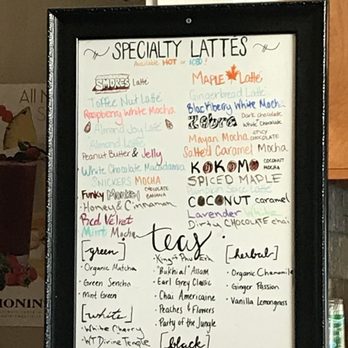 SPECIALTY LATTES
Available HOT or ICED!
SMORES Latte
Toffee Nut Latte
Raspberry White Mocha
Almond Joy Latte
Almond Latte
Peanut Butter & Jelly
White Chocolate Macadamia
SNICKERS MOCHA
Funky Monkey CHOCOLATE BANANA
Honey & Cinnamon
Red Velvet
Mint Mocha
MAPLE Latte
Gingerbread Latte
Blackberry White Mocha
Zebra Dark Chocolate White Chocolate
Mayan Mocha SPICY CHOCOLATE
Salted Caramel Mocha
KOKOMO COCONUT MOCHA
SPICED MAPLE
Pumpkin Spice Latte
COCONUT caramel
Lavender White
Dirty CHOCOLATE chai
teas
[green]
Organic Matcha
Green Sencha
Mint Green
[white]
White Cherry
WT Divine Temple
"Bukhial" Assam
Earl Grey Classic
Chai Americaine
Peaches & Flowers
Party of the Jungle
[black]
[herbal]
Organic Chamomile
Ginger Passion
Vanilla Lemongrass
All N
MONIN